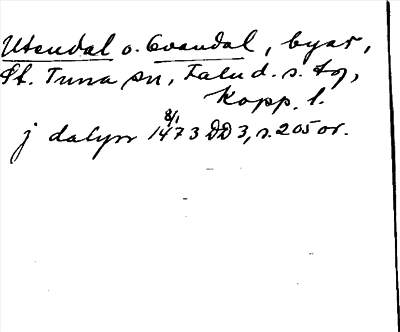 Utendal o. Ovandal, byar,
St. Tuna sn, Falu d. s. tg,
Kopp. l.
8/1
j dalyn 1473 DD 3, s. 205 or.